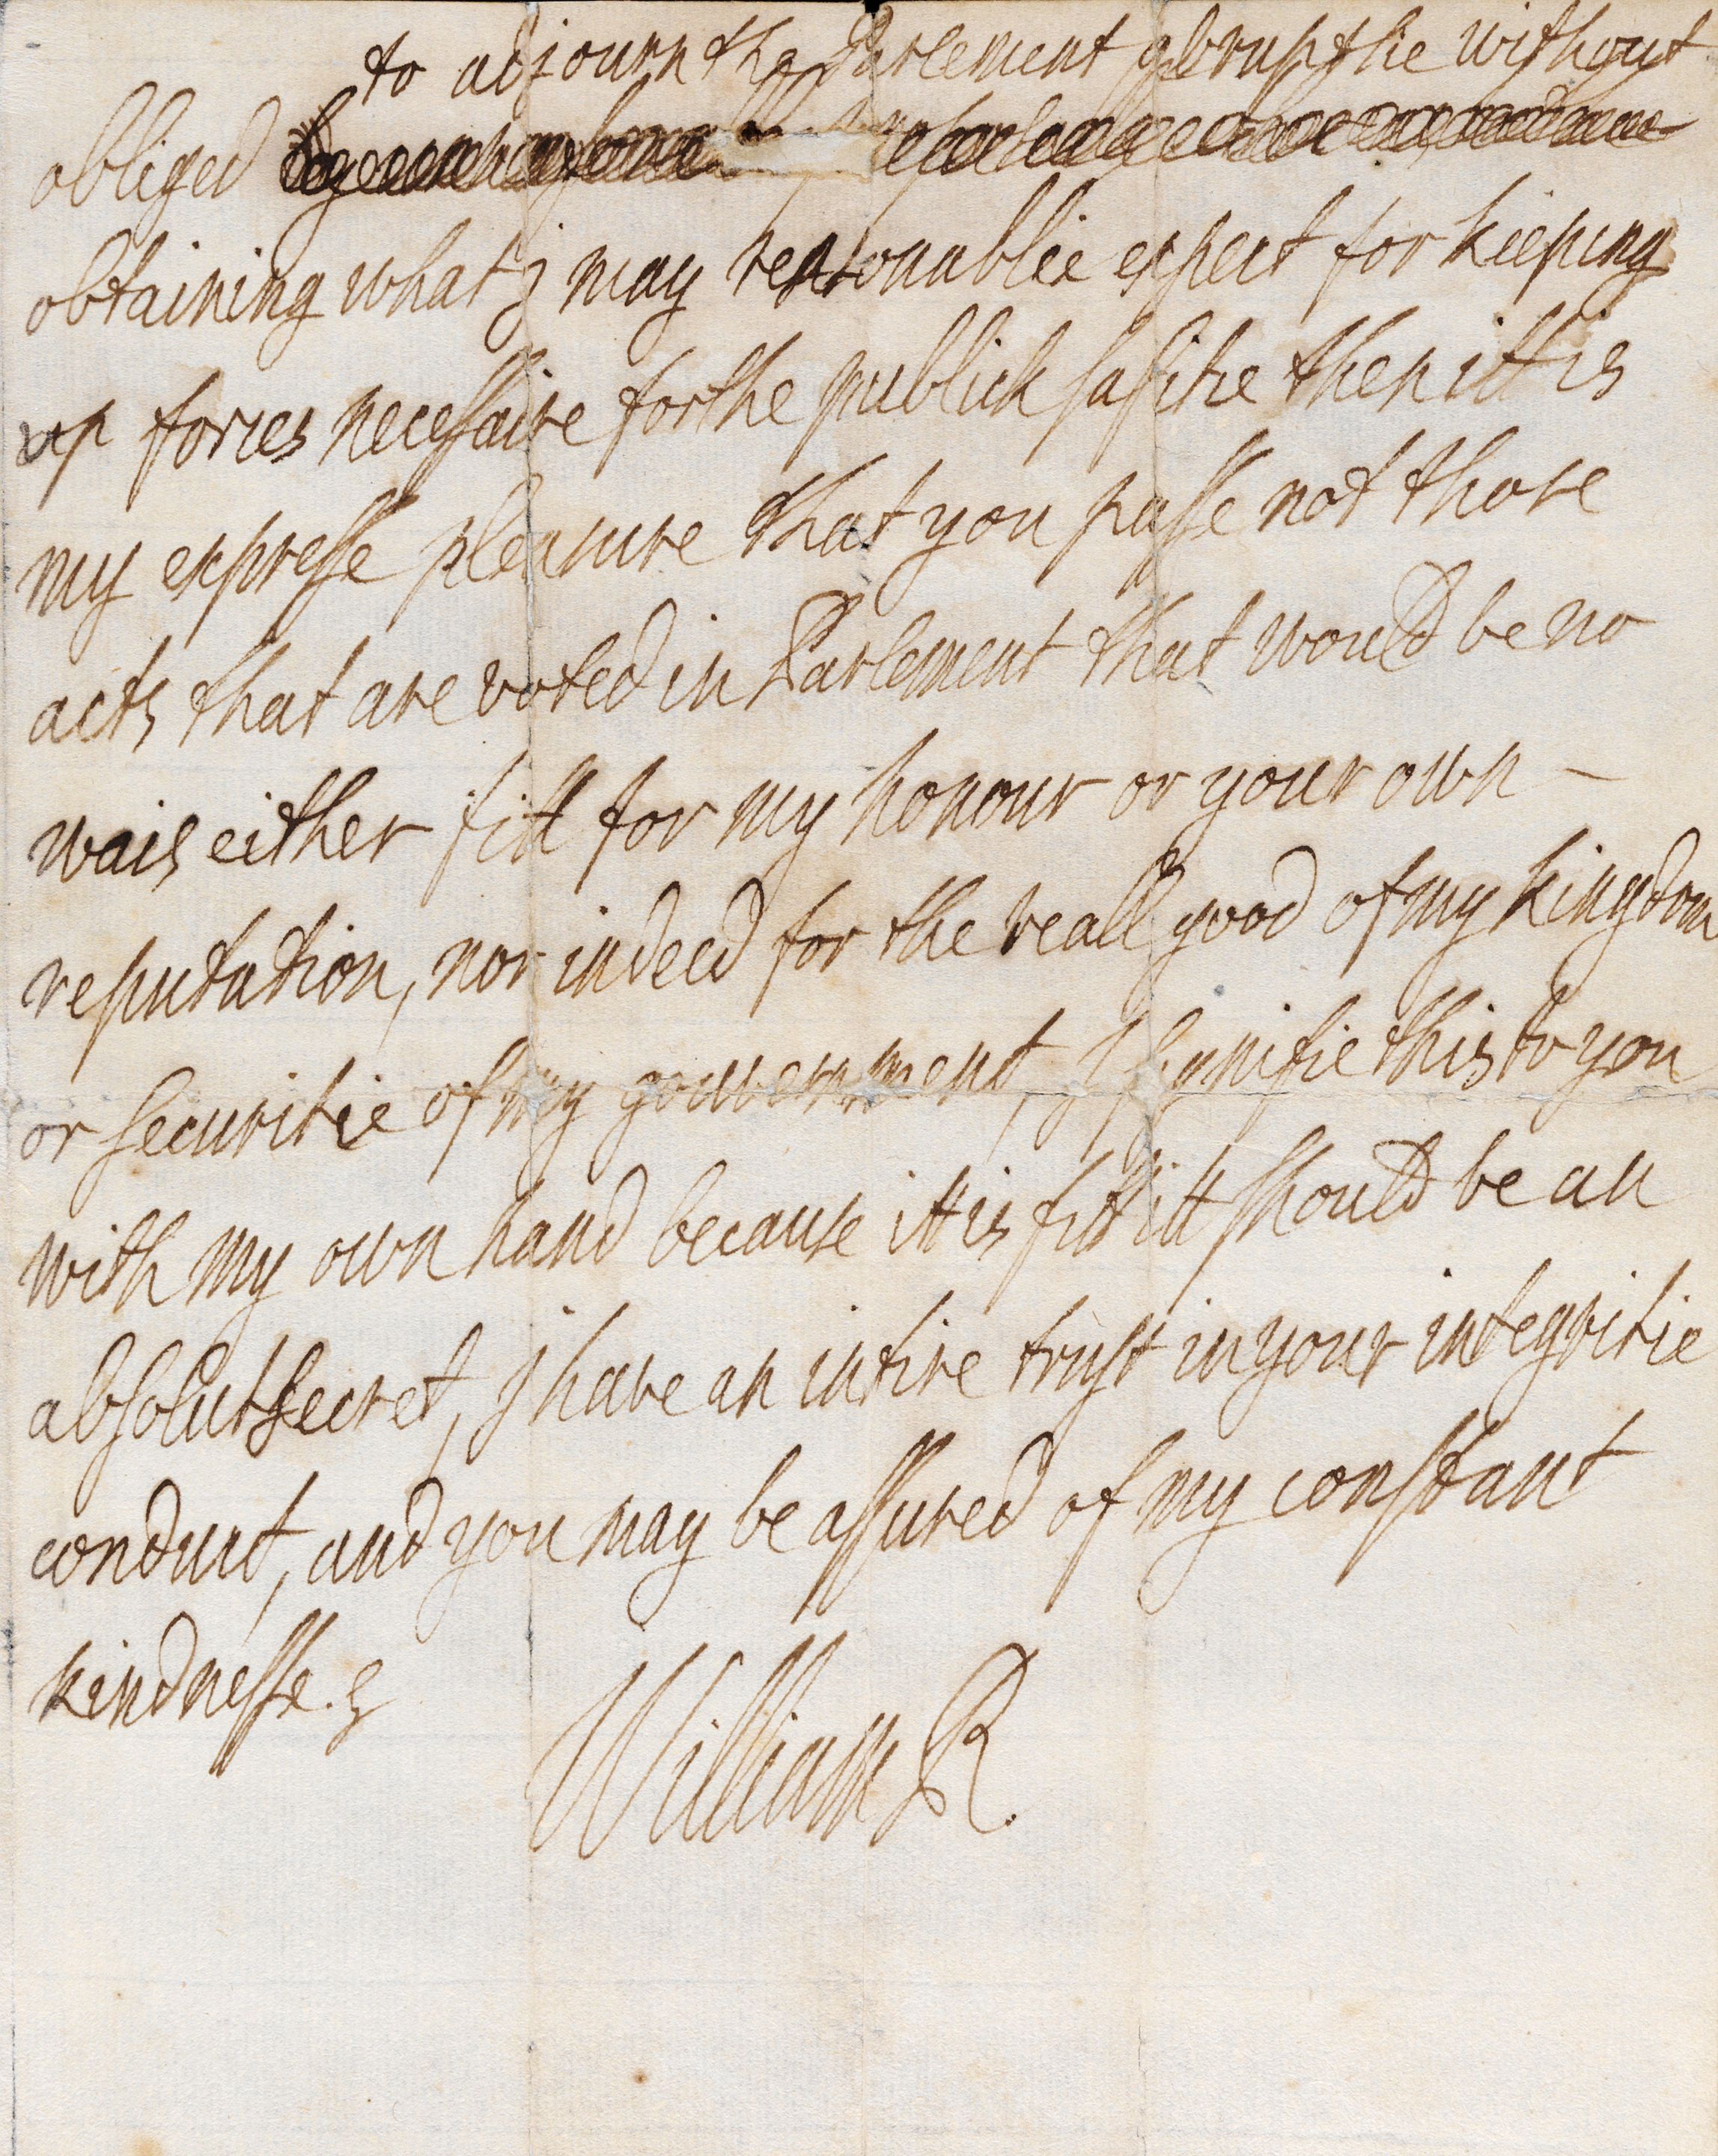 to adjourn the Parlement abrupthie without
obliged
obtaining what j may reasonablie expect for kieping
up forces necessaire for the publick safitie then itt is
my expresse pleasure that you passe not those
acts that are voted in Parlement that would be no
wais either fitt for my honour or your own –
reputation, nor indeed for the reall good of my kingdom
or securitie of my gouvernment, J signifie this to you
with my own hand because itt is fitt itt should be an
absolut secret, j have an intire trust in your integritie
conduct, and you may be assured of my constant
kindnesse.
William R.